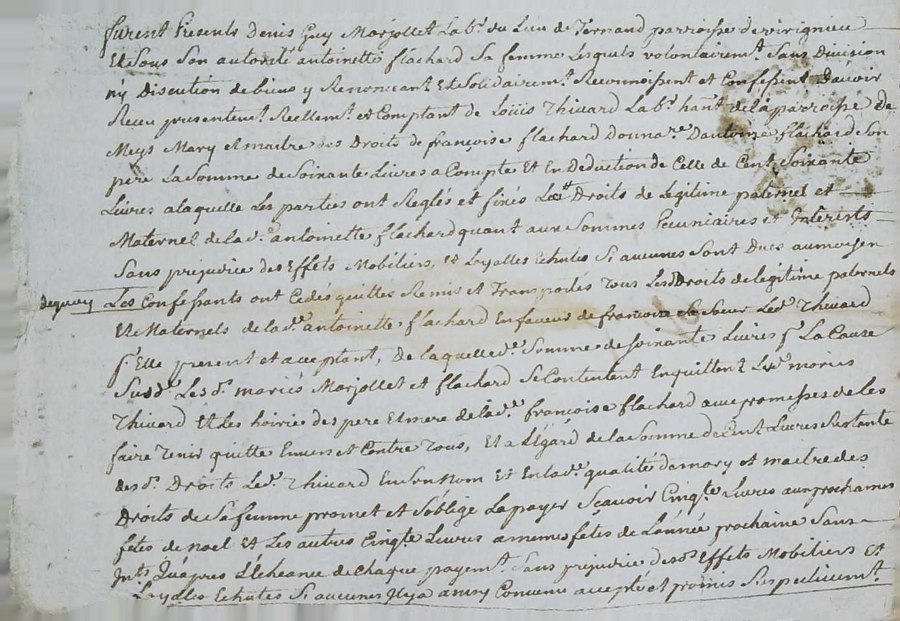 furent Presents Denis Guy Marjollet Labr. du Lieu de Fernand parroisse de virignieu
Et Sous Son autorité antoinette flachard Sa femme Lesquels volontairemt. Sans Division
ny Discution de biens y Renoncant Et Solidairemt. Reconnoissent et Confessent Davoir
Receu presentemt. Reellemt. et Comptant de Loüis Thivard Labr. hant. de la parroisse de
Meys Mary et maitre des Droits de françoise flachard donnare. Dantoine flachard Son
pere La Somme de Soixante Livres a Compte Et En Deduction de Celle de Cent Soixante
Livres a laquelle Les parties ont Reglés et fixés Les Droits de Legitime paternel et
Maternel de lade. antoinette flachard quant aux Sommes Pecuniaires et Interests
Sans prejudice des Effets Mobiliers, et Layalles Echutes Si aucunes Sont Dues au moyen
dequoy Les Confessants ont Cedés quittes Remis et Transportés Tous Lesd. Droits de legitime paternels
Et Maternels de lade. antoinette flachard En faveur de francoise Sa Soeur Led. Thivard
pr. Elle present et acceptant, de laquelle de. Somme de Soixante Livres pr. La Cause
Susde. Les ds. mariés Marjollet et flachard Se Contentent En quittent Les ds. mariés
Thivard Et Les hoiries des pere Et mere de lade. françoise flachard avec promesses de les
faire Tenir quitte Envers et Contre Tous, Et a L'égard de la Somme de Cent Livres Restante
desds. Droits Led. Thivard En Son Nom Et En lade. qualité de mary et maitre des
Droits de Sa femme promet et S'oblige La payer Scavoir Cinqte. Livres aux prochaines
fetes de noel Et Les autres Cinqte. Livres a meme fetes de L'année prochaine Sans
Ints. Qu'apres L'Echeance de Chaque payemt. Sans prejudice desds. Effets Mobiliers Et
Layalles Echutes Si aucunes Il y a ainsy Convenu accepté et promis Respectivemt.